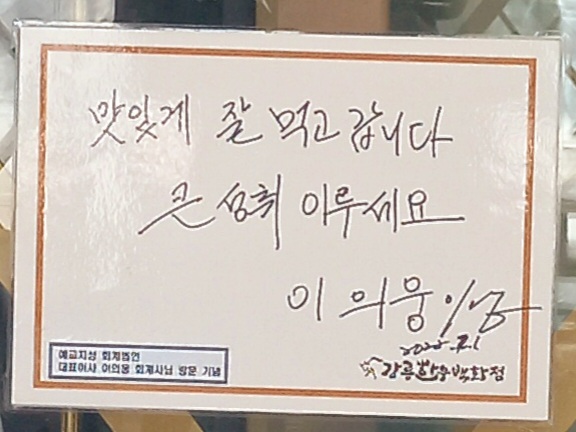 맛있게 잘 먹고 갑니다
큰 성취 이루세요
이 의웅
2022. 7. 1
예교지성 회계법인
대표이사 이의웅 회계사님 방문 기념
강릉한우백화점